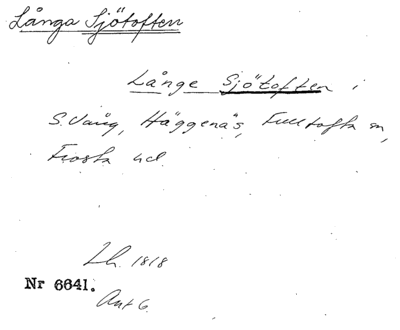 Långa Sjötoften
Långe Sjötoften i
S. Vång, Häggenäs, Fulltofta sn,
Frosta hd.
Lh. 1818
Nr 6641.
Ant 6.